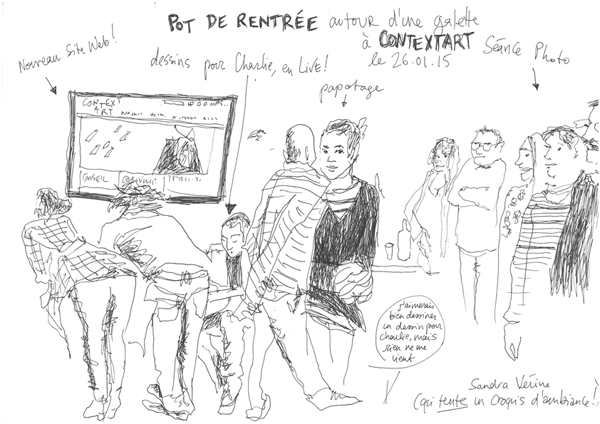 POT DE RENTRÉE autour d'une galette
à CONTEXTART
le 26.01.15
Nouveau Site Web!
dessins pour Charlie, en LIVE!
papotage
Séance Photo
CONTEXT
ART
CONSEIL
j'aimerais
bien dessiner
un dessin pour
charlie, mais
rien ne me
vient
Sandra Vérine
(qui tente un Croquis d'ambiance!)